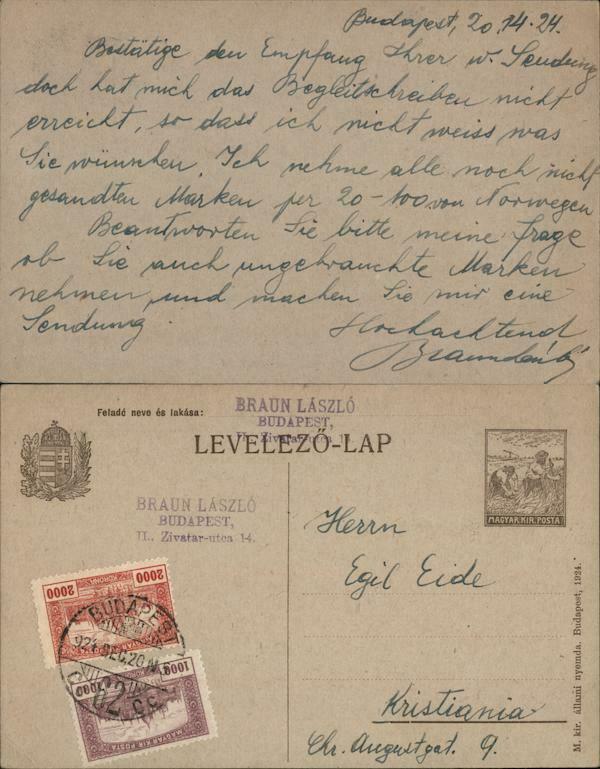 Budapest, 20.14.24.
Bestätige den Empfang Ihrer w. Sendung
doch hat mich das Begleitschreiben nicht
erreicht, so dass ich nicht weiss was
Sie wünschen. Ich nehme alle noch nicht
gesandten Marken per 20-100 von Norwegen
Beantworten Sie bitte meine Frage
ob Sie auch ungebrauchte Marken
nehmen, und machen Sie mir eine
Sendung.
Hochachtend
Feladó neve és lakása:
BRAUN LÁSZLÓ
BUDAPEST,
II., Zivatar-utca
LEVELEZŐ-LAP
BRAUN LÁSZLÓ
BUDAPEST,
II., Zivatar-utca 14.
MAGYAR KIR. POSTA
Herrn
Egil Eide
Kristiania
Chr. Augustgat. 9.
2000 2000
KORONA
BUDAPEST
924 DEC. 20
62
1000 1000
MAGYAR KIR. POSTA
M. kir. állami nyomda. Budapest, 1924.